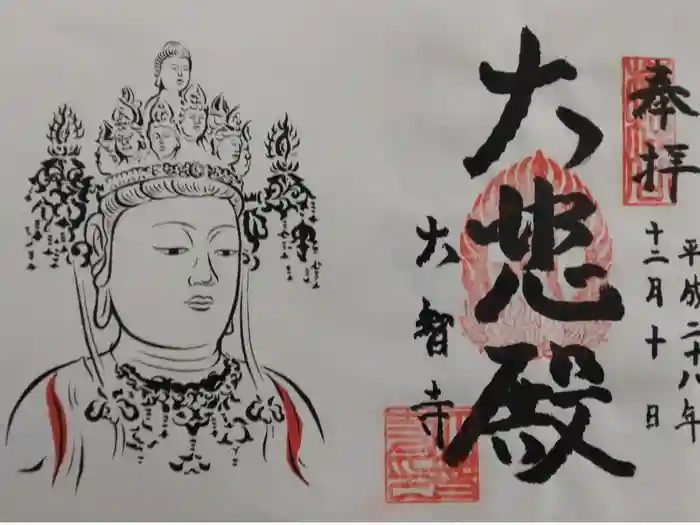 奉拝
平成二十八年
十二月十日
大悲殿
大智寺